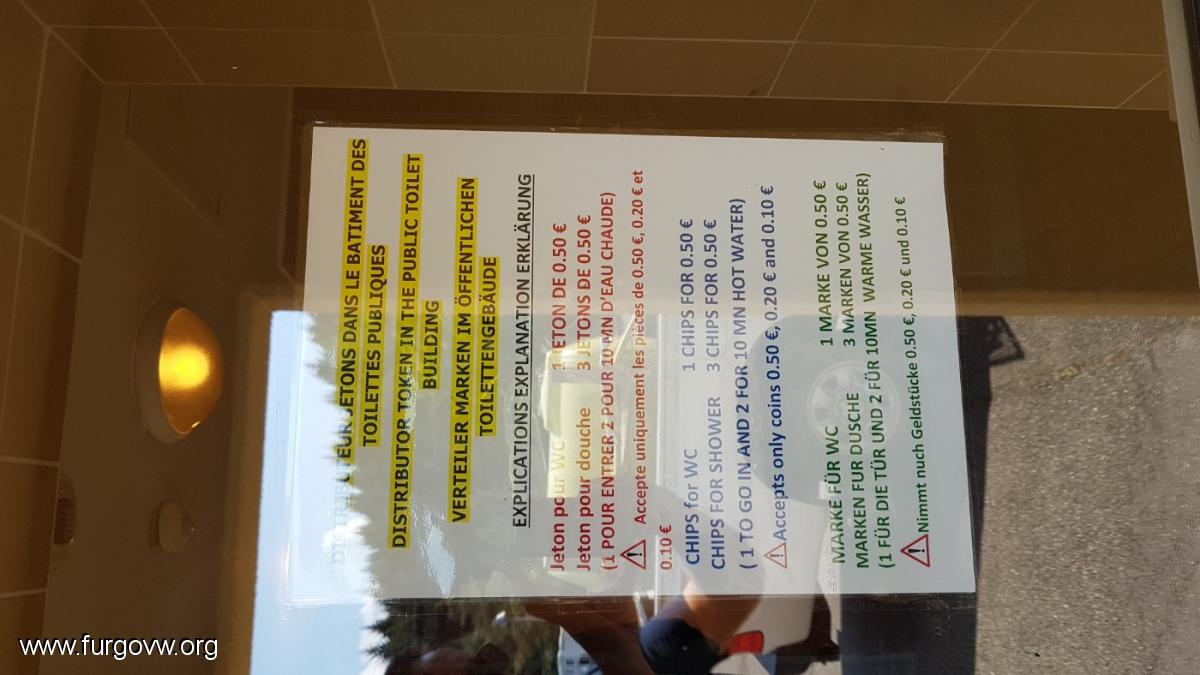 DISTRIBUTEUR JETONS DANS LE BATIMENT DES
TOILETTES PUBLIQUES
DISTRIBUTOR TOKEN IN THE PUBLIC TOILET
BUILDING
VERTEILER MARKEN IM ÖFFENTLICHEN
TOILETTENGEBÄUDE
EXPLICATIONS EXPLANATION ERKLÄRUNG
Jeton pour WC 1 JETON DE 0.50 €
Jeton pour douche 3 JETONS DE 0.50 €
(1 POUR ENTRER 2 POUR 10 MN D'EAU CHAUDE)
Accepte uniquement les pièces de 0.50 €, 0.20 € et
0.10 €
CHIPS for WC 1 CHIPS FOR 0.50 €
CHIPS FOR SHOWER 3 CHIPS FOR 0.50 €
( 1 TO GO IN AND 2 FOR 10 MN HOT WATER)
Accepts only coins 0.50 €, 0.20 € and 0.10 €
MARKE FÜR WC 1 MARKE VON 0.50 €
MARKEN FUR DUSCHE 3 MARKEN VON 0.50 €
(1 FÜR DIE TÜR UND 2 FÜR 10MN WARME WASSER)
Nimmt nuch Geldstücke 0.50 €, 0.20 € und 0.10 €
www.furgovw.org